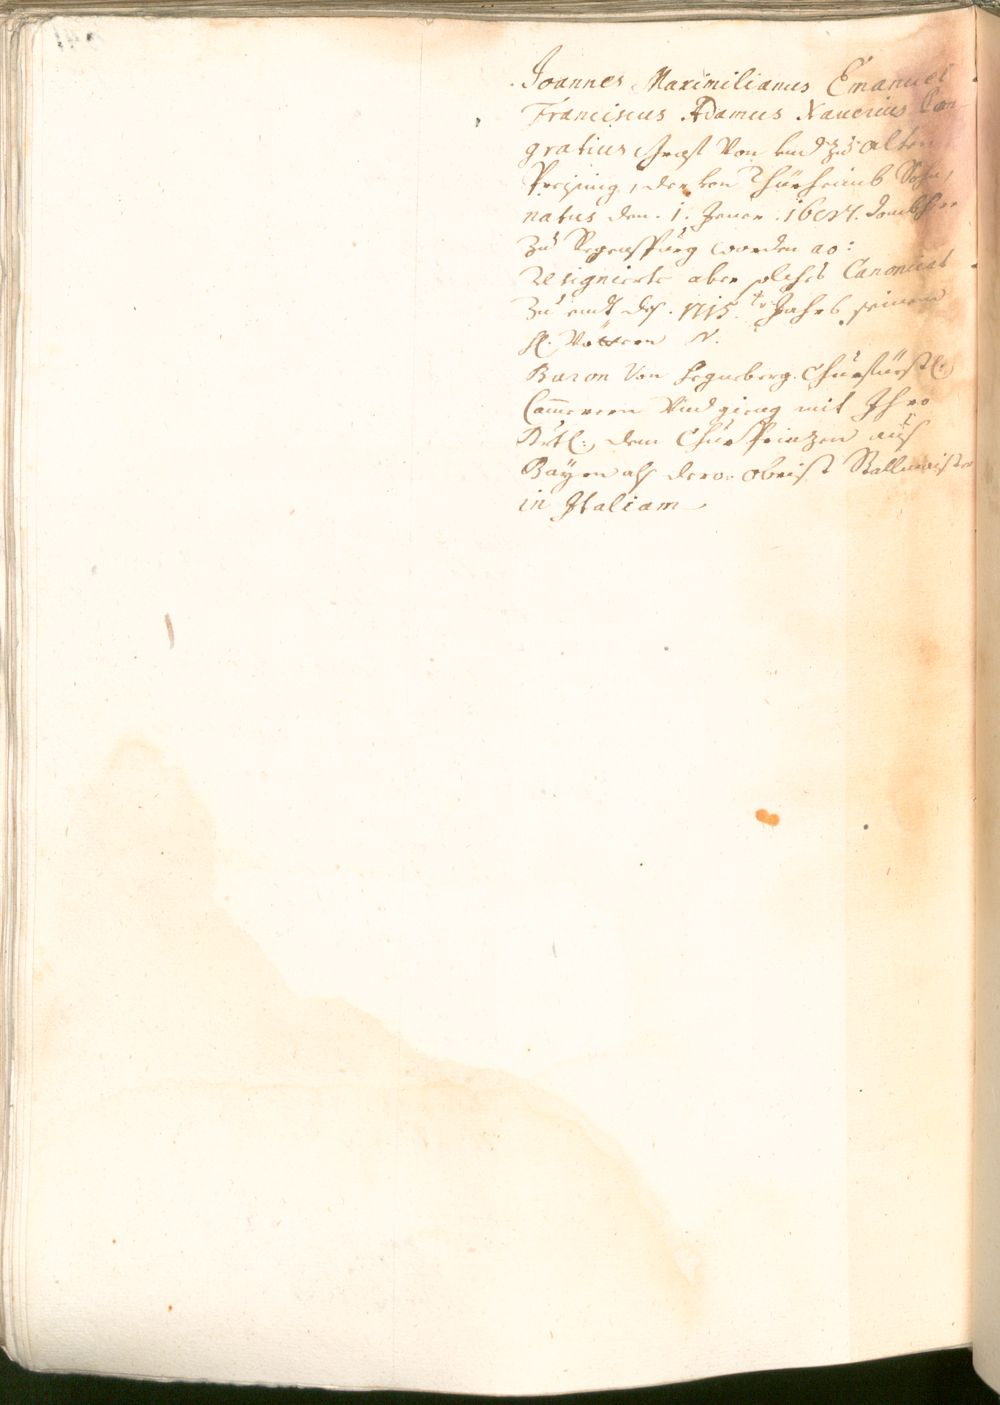 Joannes Maximilianus Emanuel
Franciscus Adamus Xauerius Pan-
gratius Graf Von und zu Alten
Preÿsing, der von Thürheimb Sohn,
natus den 1. Jener. 1687. Dombherr
Zu Regenspurg worden ao:
resignierte aber solches Canonicat
Zu endt des 1715.ten Jahrs seinem
H. Vöttern N.
Baron Von Seguberg. Churfürstl:
Cammerern Und gieng mit Ihro
Drtl: dem ChurPrinzen aus
Bayrn als dero Obrist Stallmaister
in Italiam